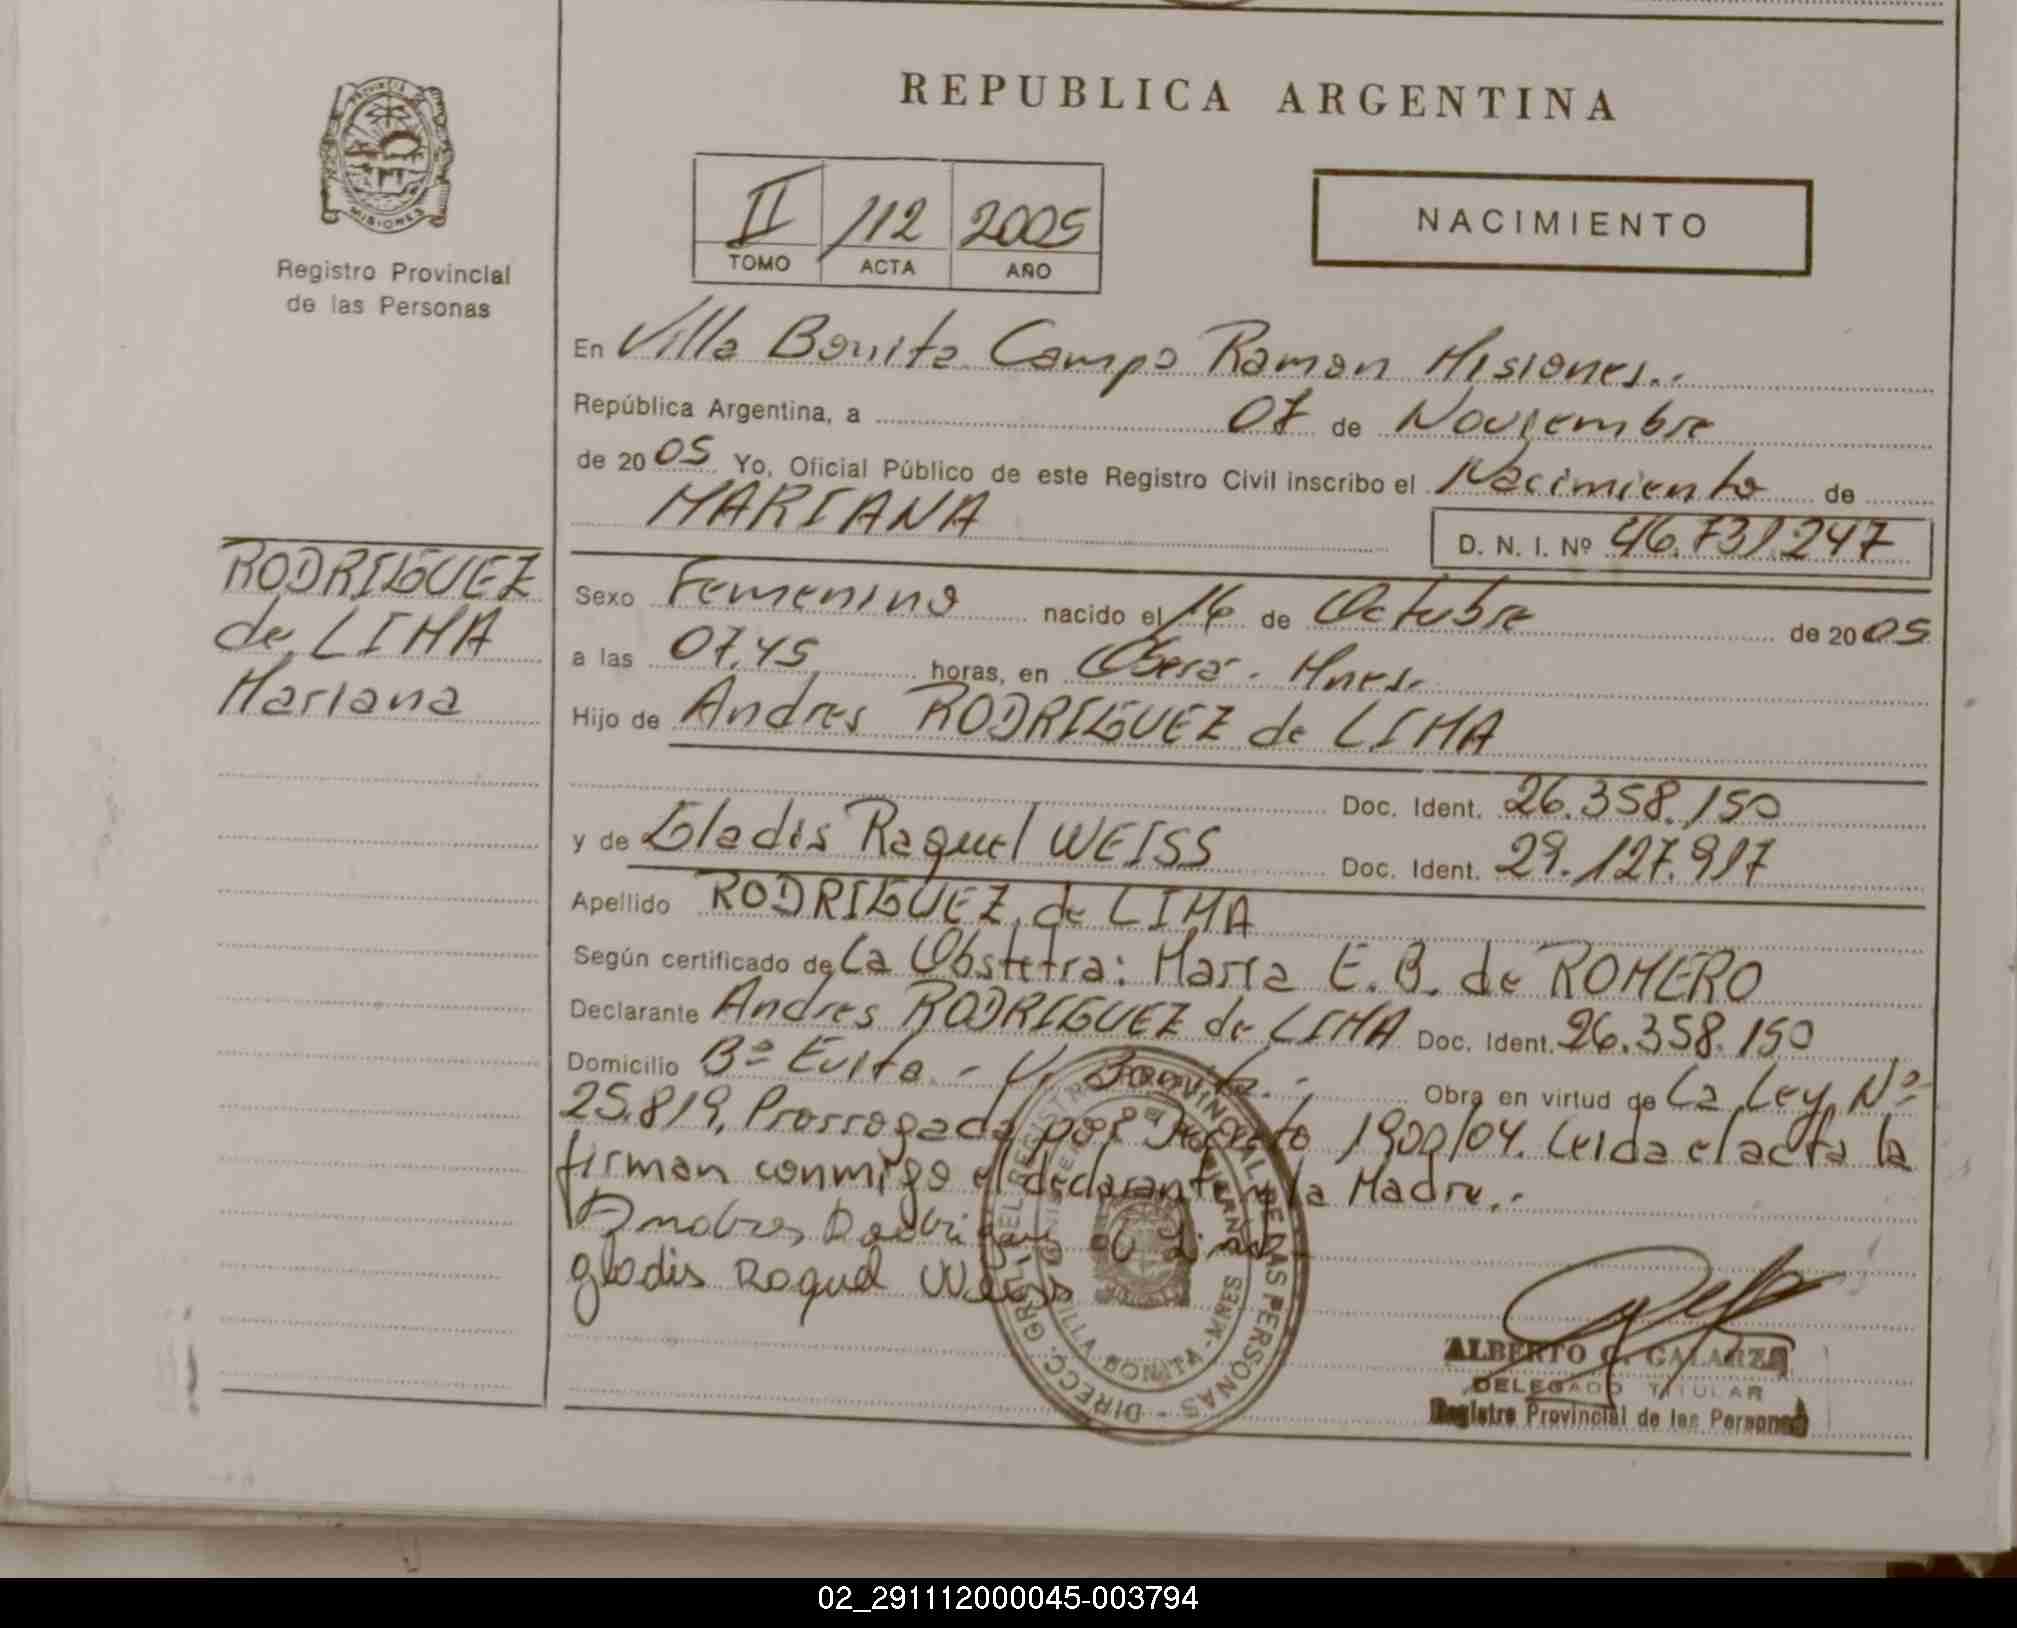 REPUBLICA ARGENTINA
MISIONES
Registro Provincial
de las Personas
II /12 2005
TOMO ACTA AÑO
NACIMIENTO
En Villa Bonita Campo Ramon Misiones..
República Argentina, a 07 de Noviembre
de 2005 Yo, Oficial Público de este Registro Civil inscribo el Nacimiento de
MARIANA
D. N. I. Nº 46.731.247
RODRIGUEZ
de LIMA
Mariana
Sexo Femenino nacido el 16 de Octubre de 2005
a las 07.45 horas, en Oberá - Mnes.
Hijo de Andres RODRIGUEZ de LIMA
Doc. Ident. 26.358.150
y de Gladis Raquel WEISS Doc. Ident. 29.127.917
Apellido RODRIGUEZ de LIMA
Según certificado de La Obstetra: Maria E. B. de ROMERO
Declarante Andres RODRIGUEZ de LIMA Doc. Ident. 26.358.150
Domicilio Bº Evita - V. Bonita.- Obra en virtud de La Ley Nº
25.819, Prorrogada por Decreto 1900/04. Leida el acta la
firman conmigo el declarante y la Madre.-
gladis Raquel Weiss
DIRECC. GRAL. DEL REGISTRO PROVINCIAL DE LAS PERSONAS
VILLA BONITA - MNES
ALBERTO C. GALARZA
DELEGADO TITULAR
Registro Provincial de las Personas
02_291112000045-003794